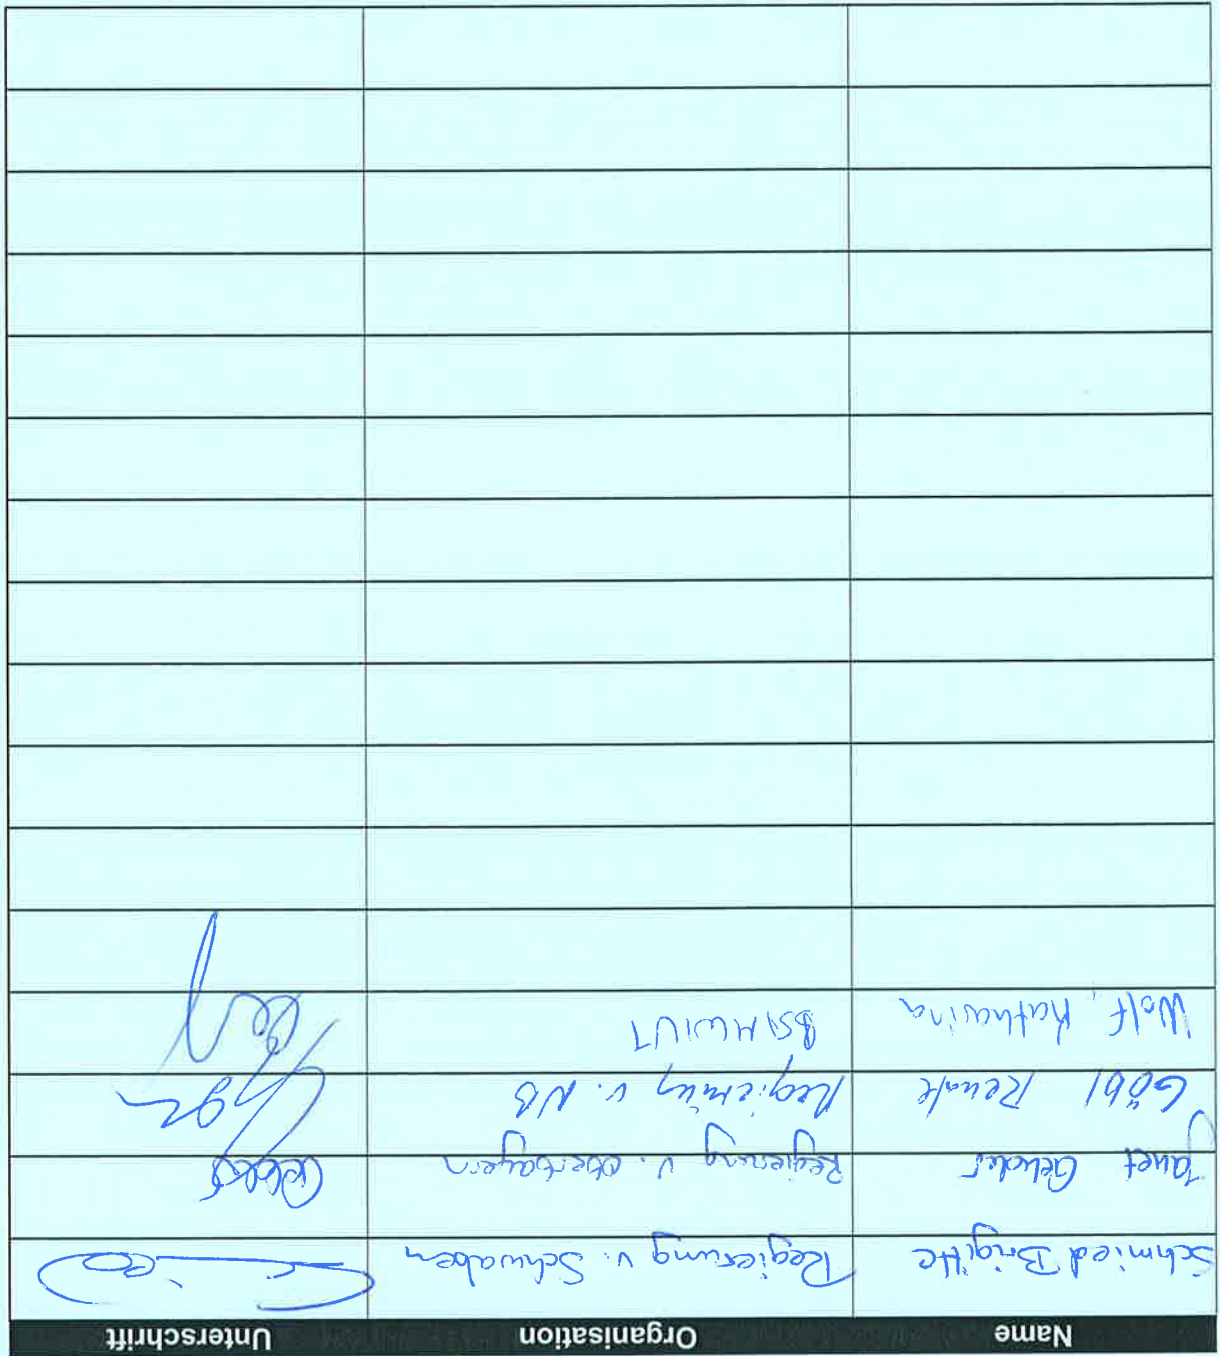 Name Organisation Unterschrift
Schmied Brigitte Regierung v. Schwaben
Janet Regierung v. Oberbayern
Göbl Renate Regierung v. NB
Wolf, Katharina BStMWIVT